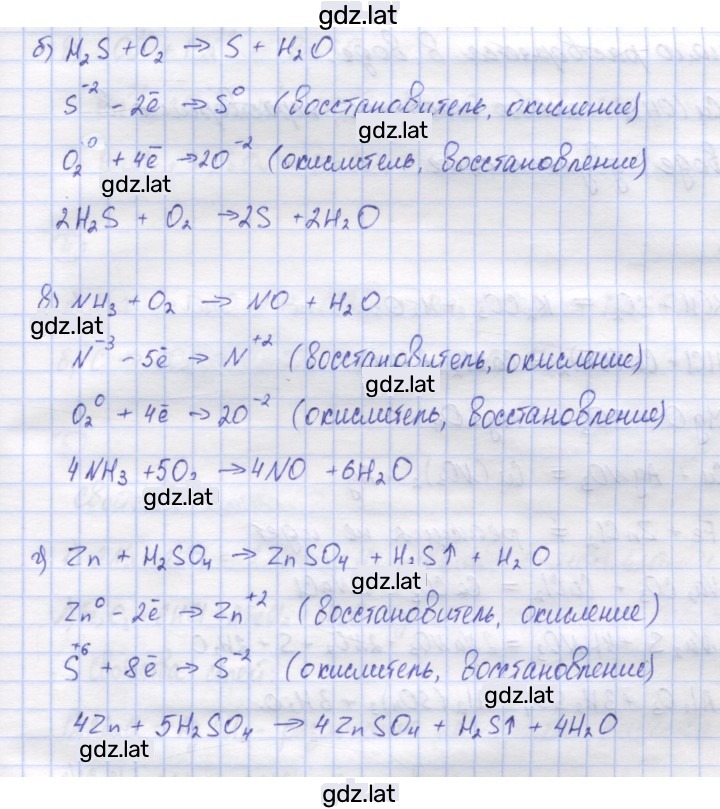 gdz.lat
б) H₂S + O₂ → S + H₂O
S⁻² - 2ē → S⁰ (восстановитель, окисление)
gdz.lat
O₂⁰ + 4ē → 2O⁻² (окислитель, восстановление)
gdz.lat
2H₂S + O₂ → 2S + 2H₂O
в) NH₃ + O₂ → NO + H₂O
gdz.lat
N⁻³ - 5ē → N⁺² (восстановитель, окисление)
gdz.lat
O₂⁰ + 4ē → 2O⁻² (окислитель, восстановление)
4NH₃ + 5O₂ → 4NO + 6H₂O
gdz.lat
г) Zn + H₂SO₄ → ZnSO₄ + H₂S↑ + H₂O
gdz.lat
Zn⁰ - 2ē → Zn⁺² (восстановитель, окисление)
S⁺⁶ + 8ē → S⁻² (окислитель, восстановление)
gdz.lat
4Zn + 5H₂SO₄ → 4ZnSO₄ + H₂S↑ + 4H₂O
gdz.lat
gdz.lat